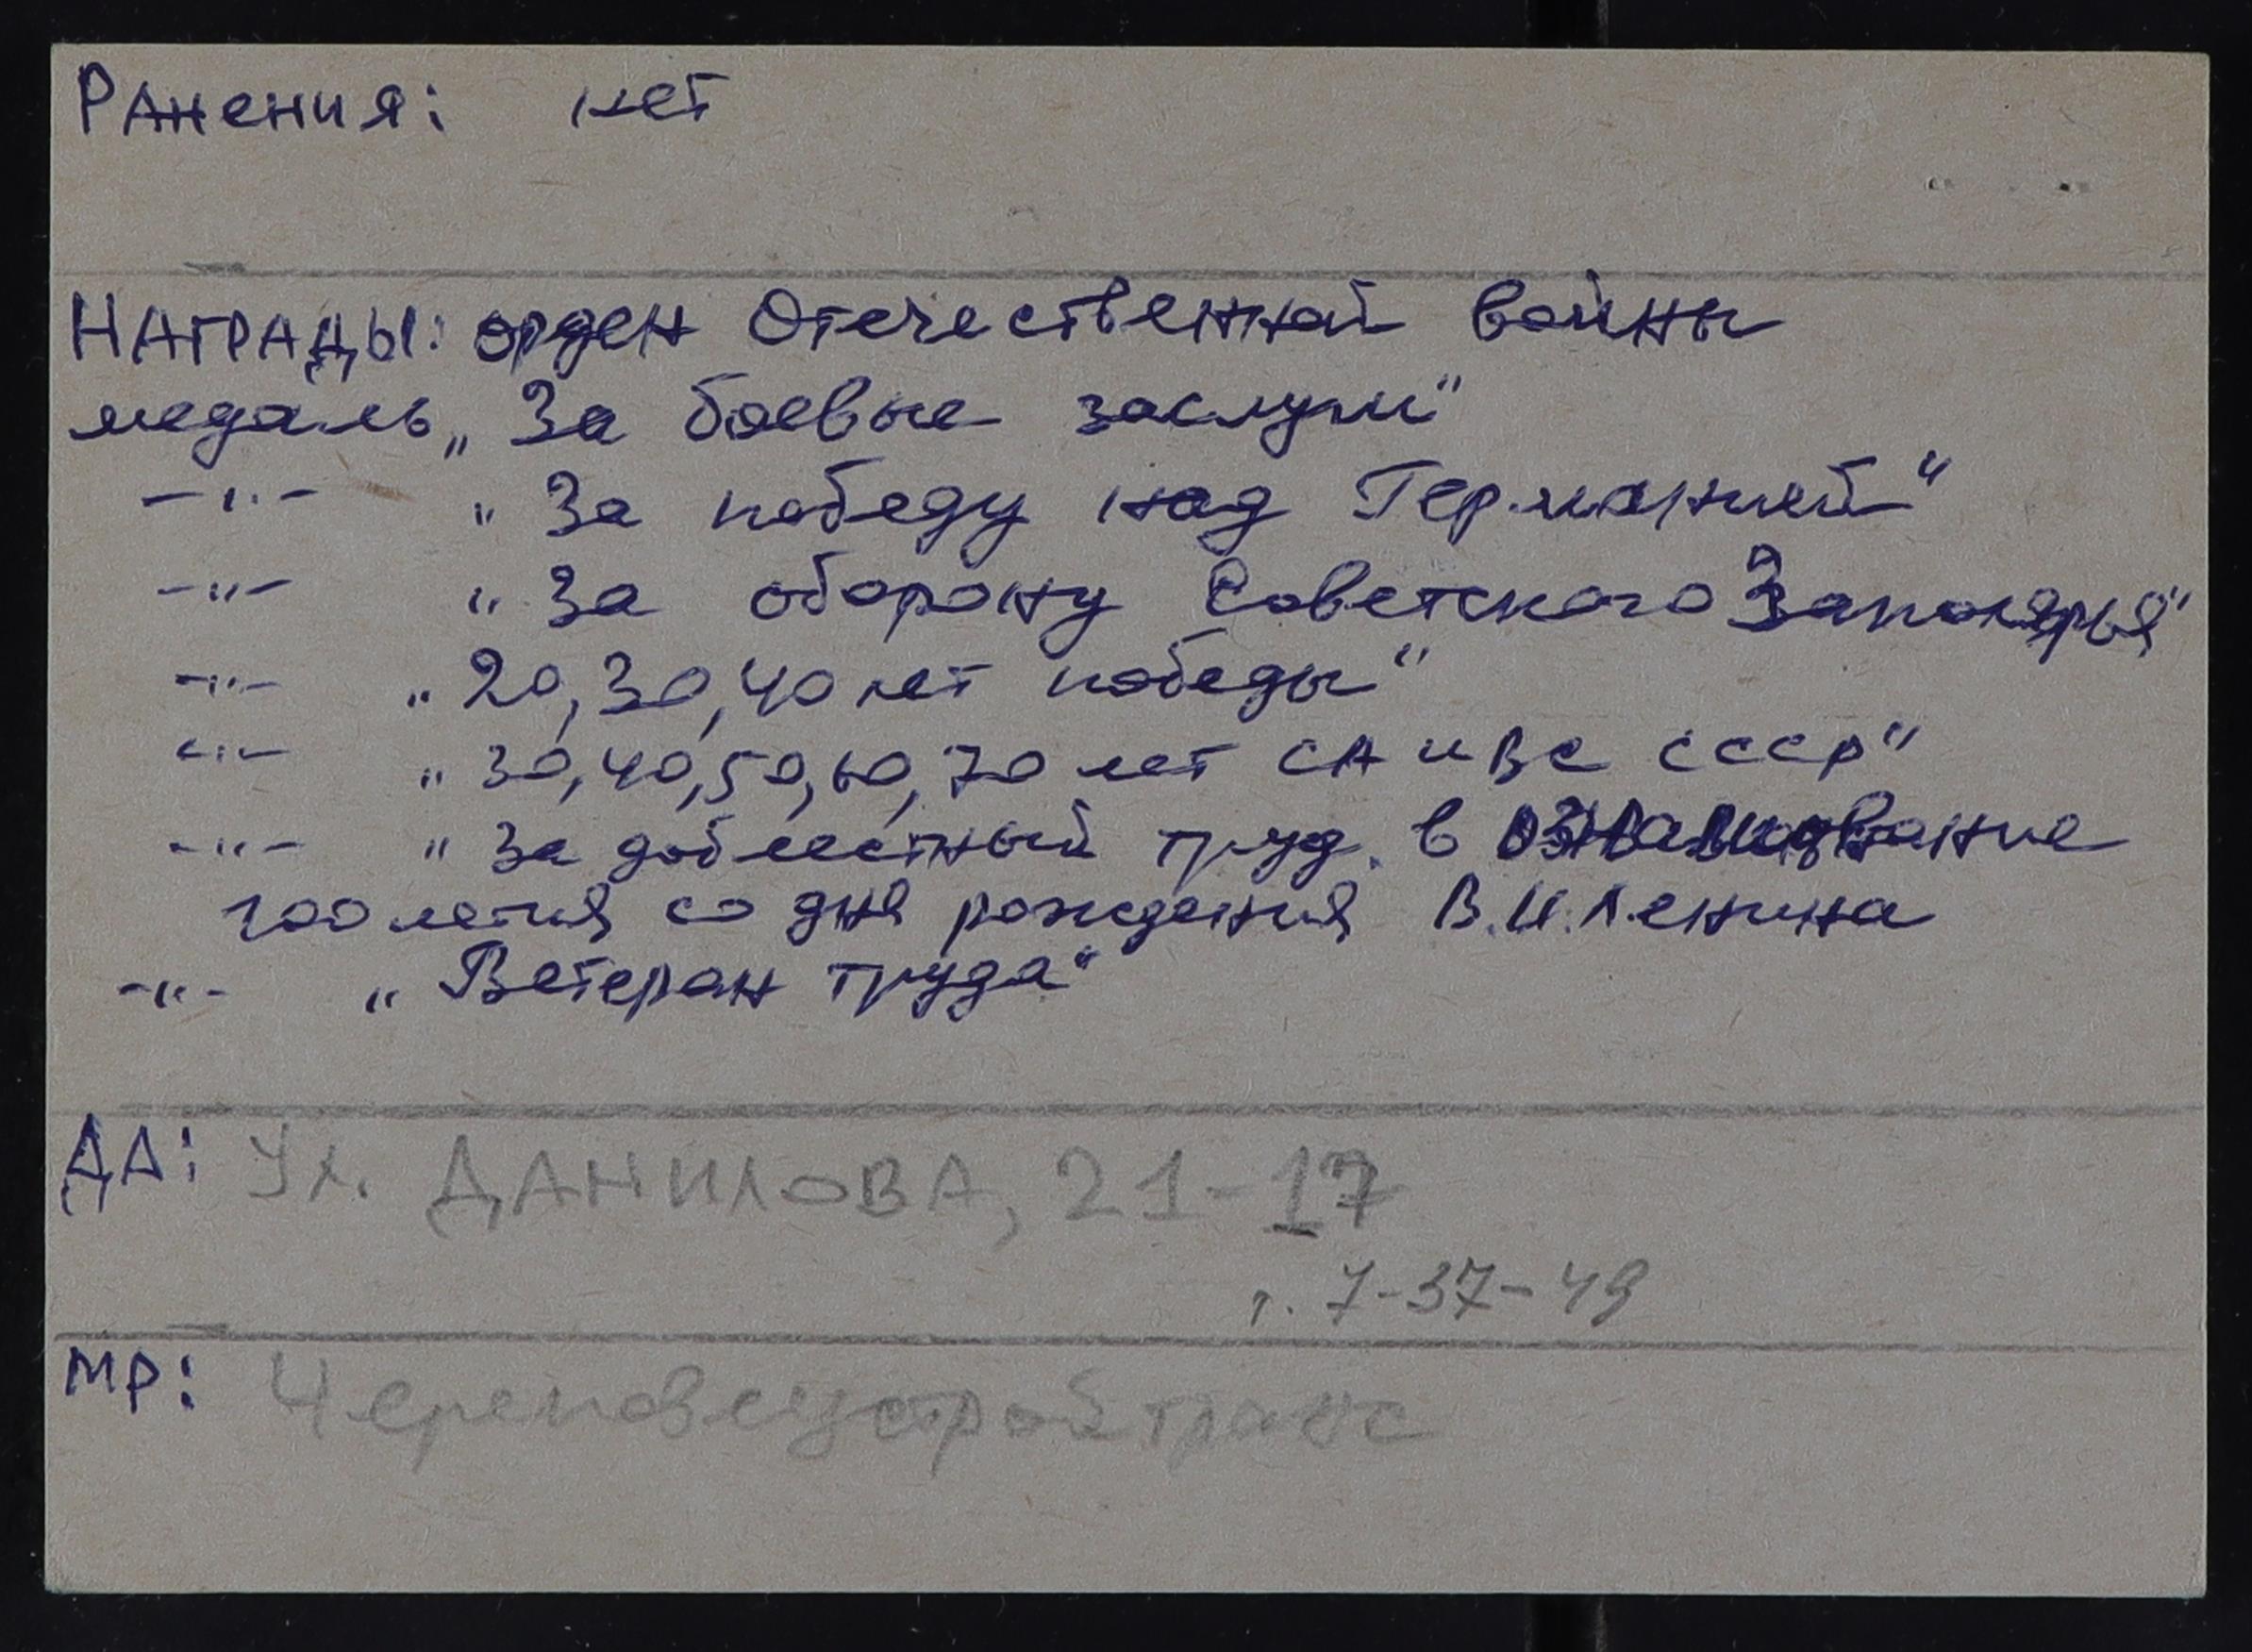 Ранения: нет
Награды: орден Отечественной войны
медаль „За боевые заслуги"
-"- „За победу над Германией"
-"- „За оборону Советского Заполярья"
-"- „20, 30, 40 лет победы"
-"- „30, 40, 50, 60, 70 лет СА и ВС СССР"
-"- „За доблестный труд. в ознаменование
100 летия со дня рождения В.И. Ленина
-"- „Ветеран труда"
ДА: Ул. ДАНИЛОВА, 21-17
т. 7-37-49
МР: Череповецстройтранс